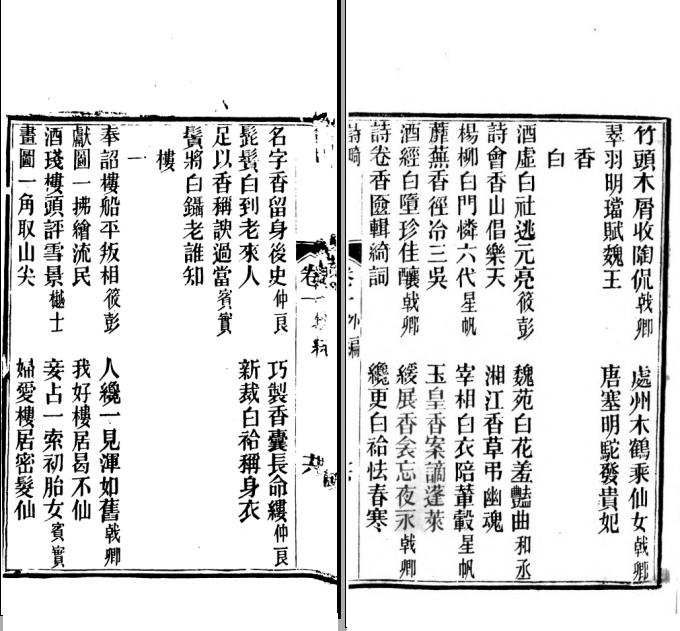 竹頭木屑收陶侃戟卿　處州木鶴乘仙女戟卿
翠羽明璫賦魏王　唐塞明駝發貴妃
香
白
酒虛白社逃元亮筱彭　魏苑白花羞豔曲和丞
詩會香山倡樂天　湘江香草弔幽魂
楊柳白門憐六代星帆　宰相白衣陪輦轂星帆
蘼蕪香徑冶三吳　玉皇香案謫蓬萊
酒經白墮珍佳釀戟卿　緩展香衾忘夜永戟卿
詩卷香匳輯綺詞　纔更白袷怯春寒
詩畸　卷一外編
卷一　六
名字香留身後史仲良　巧製香囊長命縷仲良
髭鬢白到老來人　新裁白袷稱身衣
足以香稱諛過當賓實
鬢將白鑷老誰知
樓
一
奉詔樓船平叛相筱彭　人纔一見渾如舊戟卿
獻圖一拂繪流民　我好樓居曷不仙
酒琖樓頭評雪景樾士　妾占一索初胎女賓實
畫圖一角取山尖　婦愛樓居密髮仙